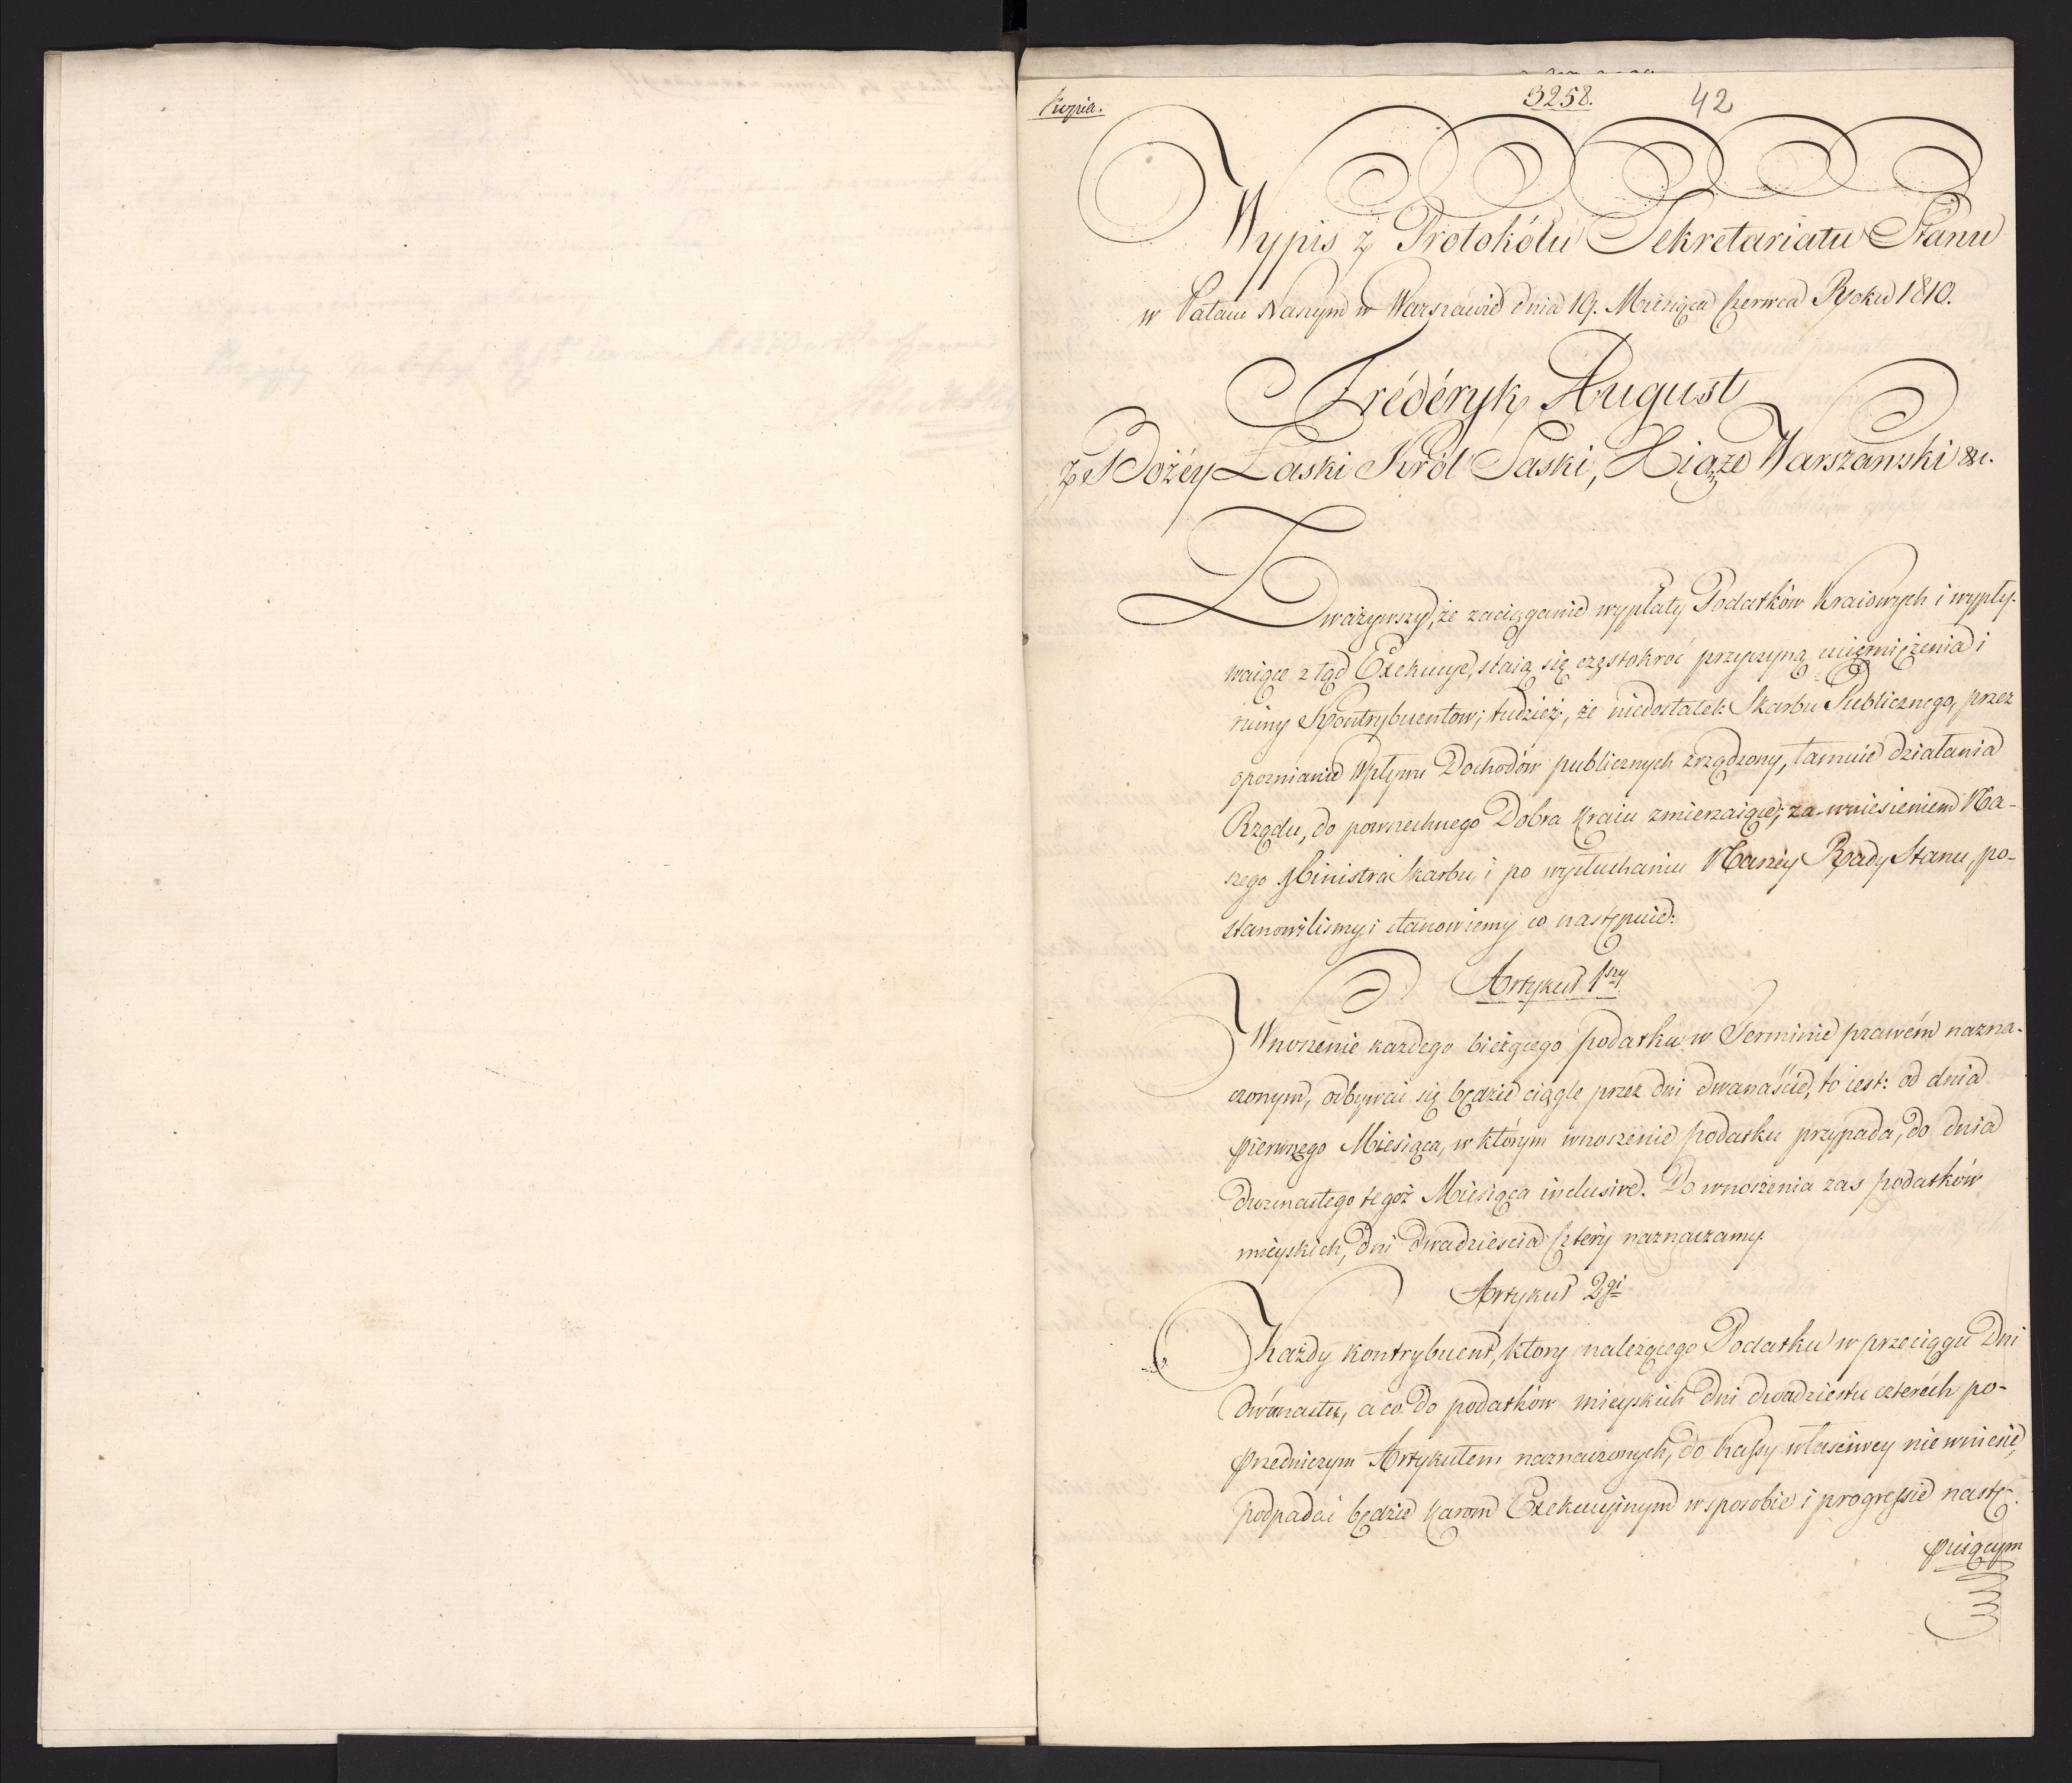 Kopia.
3258.
42
Wypis z Protokółu Sekretariatu Stanu
w Pałacu Naszym w Warszawie dnia 19. Miesiąca Czerwca Roku 1810.
Frédéryk August
z Bożéy Łaski Król Saski, Xiąże Warszawski &c.
Zważywszy, że zaciąganie wypłaty Podatków Kraiowych i wypły-
waiące z tąd Exekucye, staią się częstokroć przyczyną uciemiężenia i
ruiny Kontrybuentow; tudzież, że niedostatek Skarbu Publicznego, przez
opoznianie Wpływu Dochodów publicznych zrządzony, tamuie działania
Rządu, do powszechnego Dobra Kraiu zmierzaiące; za wniesieniem Na-
szego Ministra Skarbu i po wysłuchaniu Naszéy Rady Stanu, po-
stanowiliśmy i stanowiemy co następuie:
Artykuł 1szy
Wnoszenie każdego bieżącego podatku w Terminie prawém nazna-
czonym, odbywać się będzie ciągle przez dni dwanaście, to iest: od dnia
pierwszego Miesiąca, w którym wnoszenie podatku przypada, do dnia
dwunastego tegoż Miesiąca inclusive. Do wnoszenia zas podatków
mieyskich, dni dwadzieścia cztéry naznaczamy.
Artykuł 2gi
Każdy kontrybuent, ktory należącego Podatku w przeciągu Dni
dwónastu, a co do podatków mieyskich dni dwadziestu czteréch po-
przedniczym Artykułem naznaczonych, do Kassy właściwey nie wniesie,
podpadać będzie karom Exekucyjnym w sposobie i progressie nastę-
puiącym